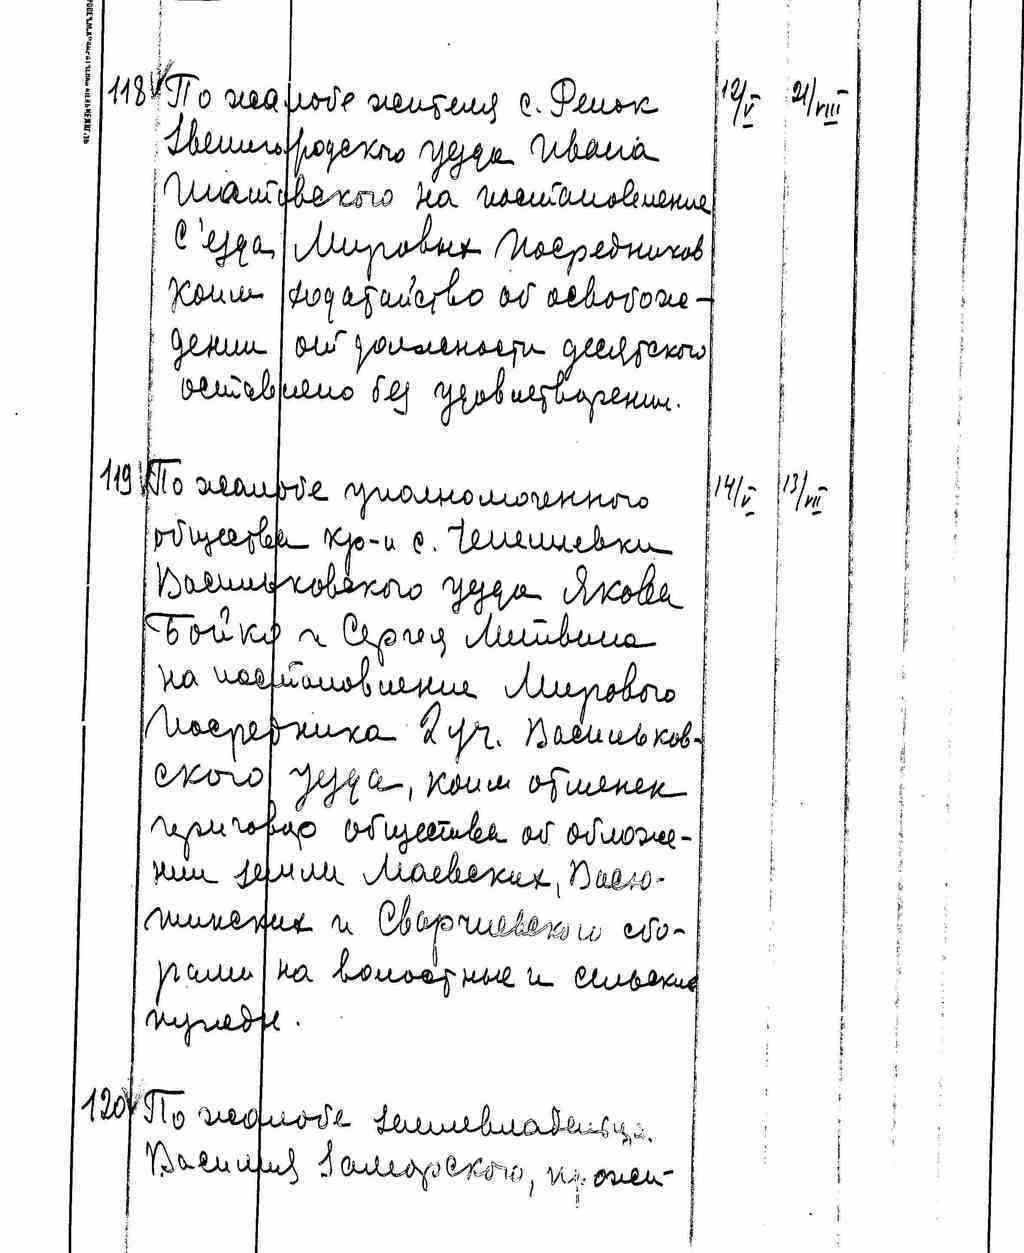 118 По жалобе жителя с. Репок 12/V 21/VIII
Звенигородского уезда Ивана
Шатовского на постановление
С'езда Мировых Посредников
коим ходатайство об освобож-
дении от должности десятского
оставлено без удовлетворения.
119 По жалобе уполномоченного 14/V 13/VII
общества кр-н с. Чепелевки
Васильковского уезда Якова
Бойко и Сергея Литвина
на постановление Мирового
Посредника 2 уч. Васильков-
ского уезда, коим отменен
приговор общества об обложе-
нии земли Маевских, Васю-
тинских и Сварчевского сбо-
рами на волостные и сельские
нужды.
120 По жалобе землевладельца
Василия Заморского, прожи-